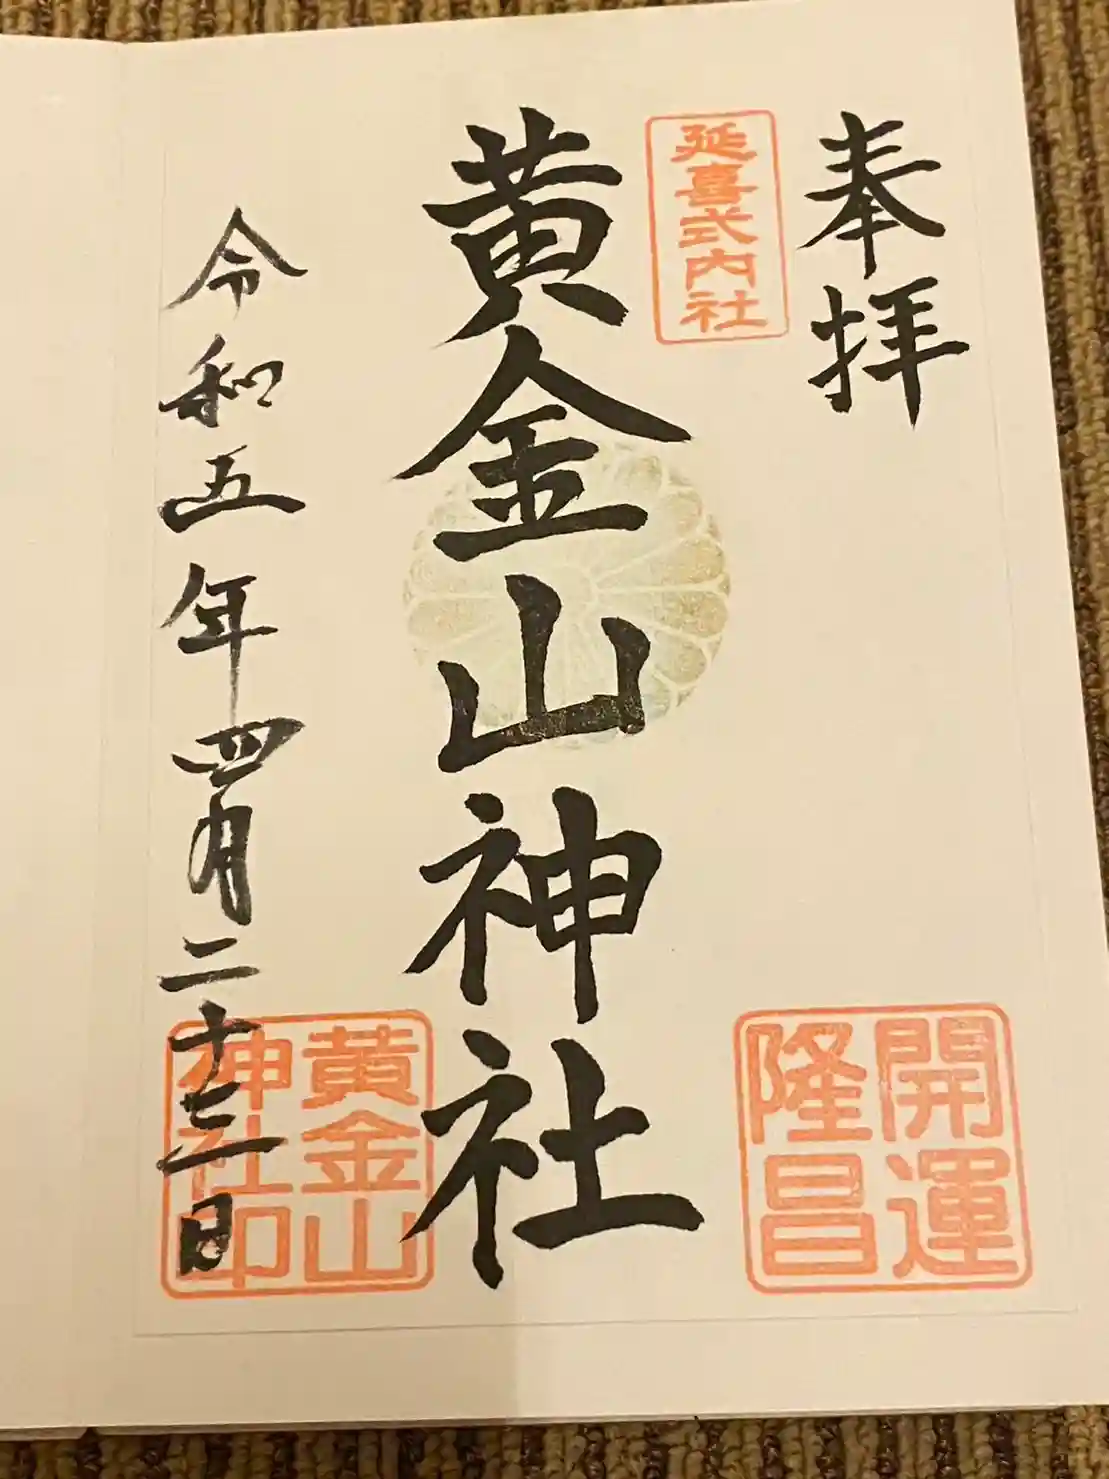 奉拝
延喜式内社
開運
隆昌
黄金山神社
令和五年四月二十三日
黄金山
神社印